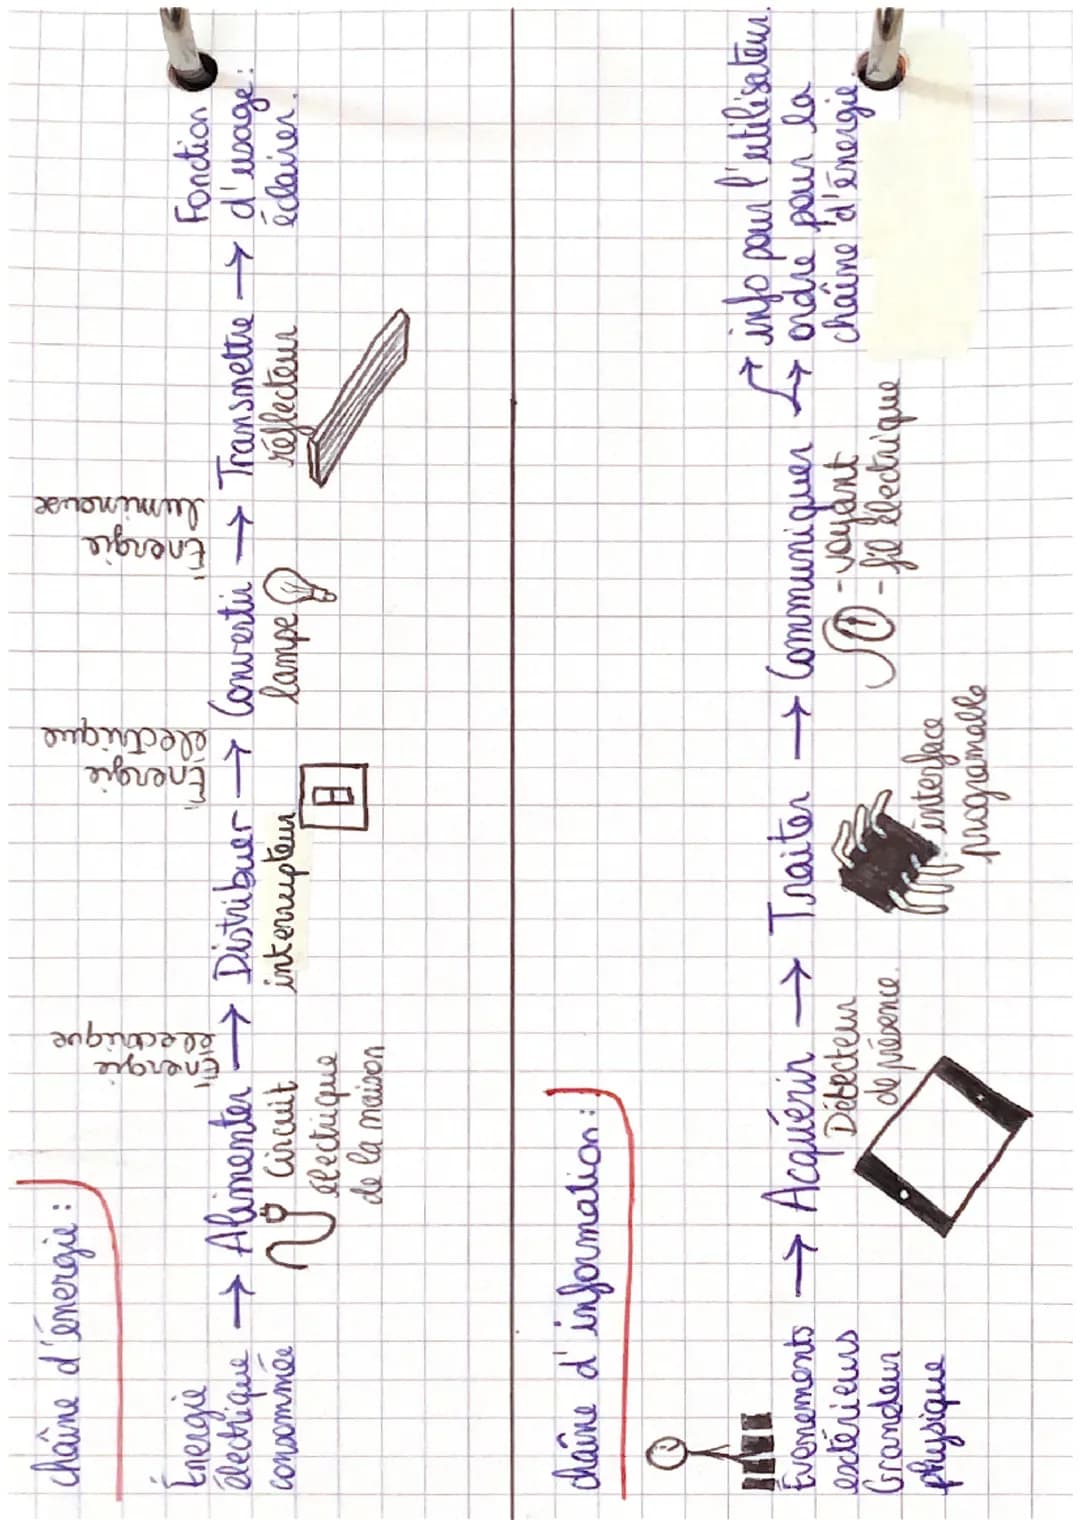 chaîne d'énergie :
Énergie
électrique
consommée
→ Alimenter →
Circuit
électrique
de la maison
Énergie
électrique
Distribuer →
interrupteur
Énergie
électrique
Convertir →
lampe
Énergie
lumineuse
Transmettre →
réflecteur
Fonction
d'usage :
éclairer.
chaîne d'information :
Évenements
extérieurs
Grandeur
physique
→ Acquérir →
Détecteur
de présence.
Traiter →
interface
programable
Communiquer
- voyant
- fil électrique
→ info pour l'utilisateur.
→ ordre pour la
chaîne d'énergie.